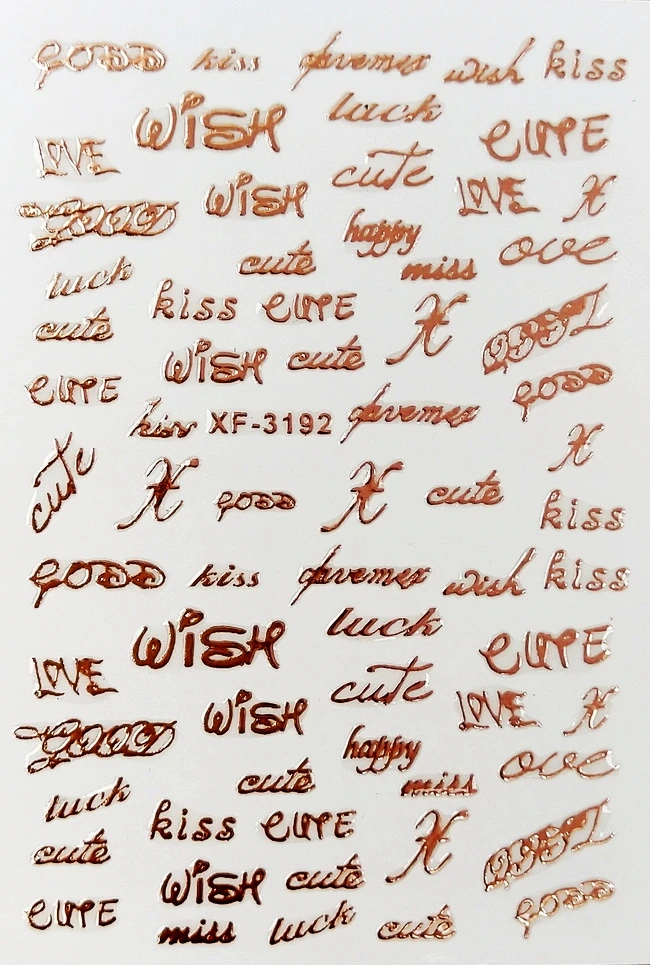 GOOD kiss wish kiss
WISH luck
LOVE CUTE
cute
WISH LOVE X
GOOD happy
cute miss ove
luck
kiss CUTE X
cute
WISH cute
CUTE GOOD
kiss XF-3192
X
cute X GOOD X cute
kiss
GOOD kiss wish kiss
WISH luck
LOVE CUTE
cute
WISH LOVE X
GOOD happy
cute miss ove
luck
kiss CUTE X
cute
WISH cute
CUTE GOOD
miss luck cute